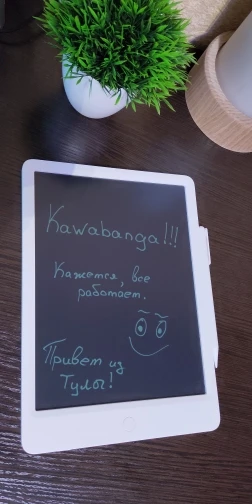 Kawabanga!!!
Кажется, все
работает.
Привет из
Тулы!